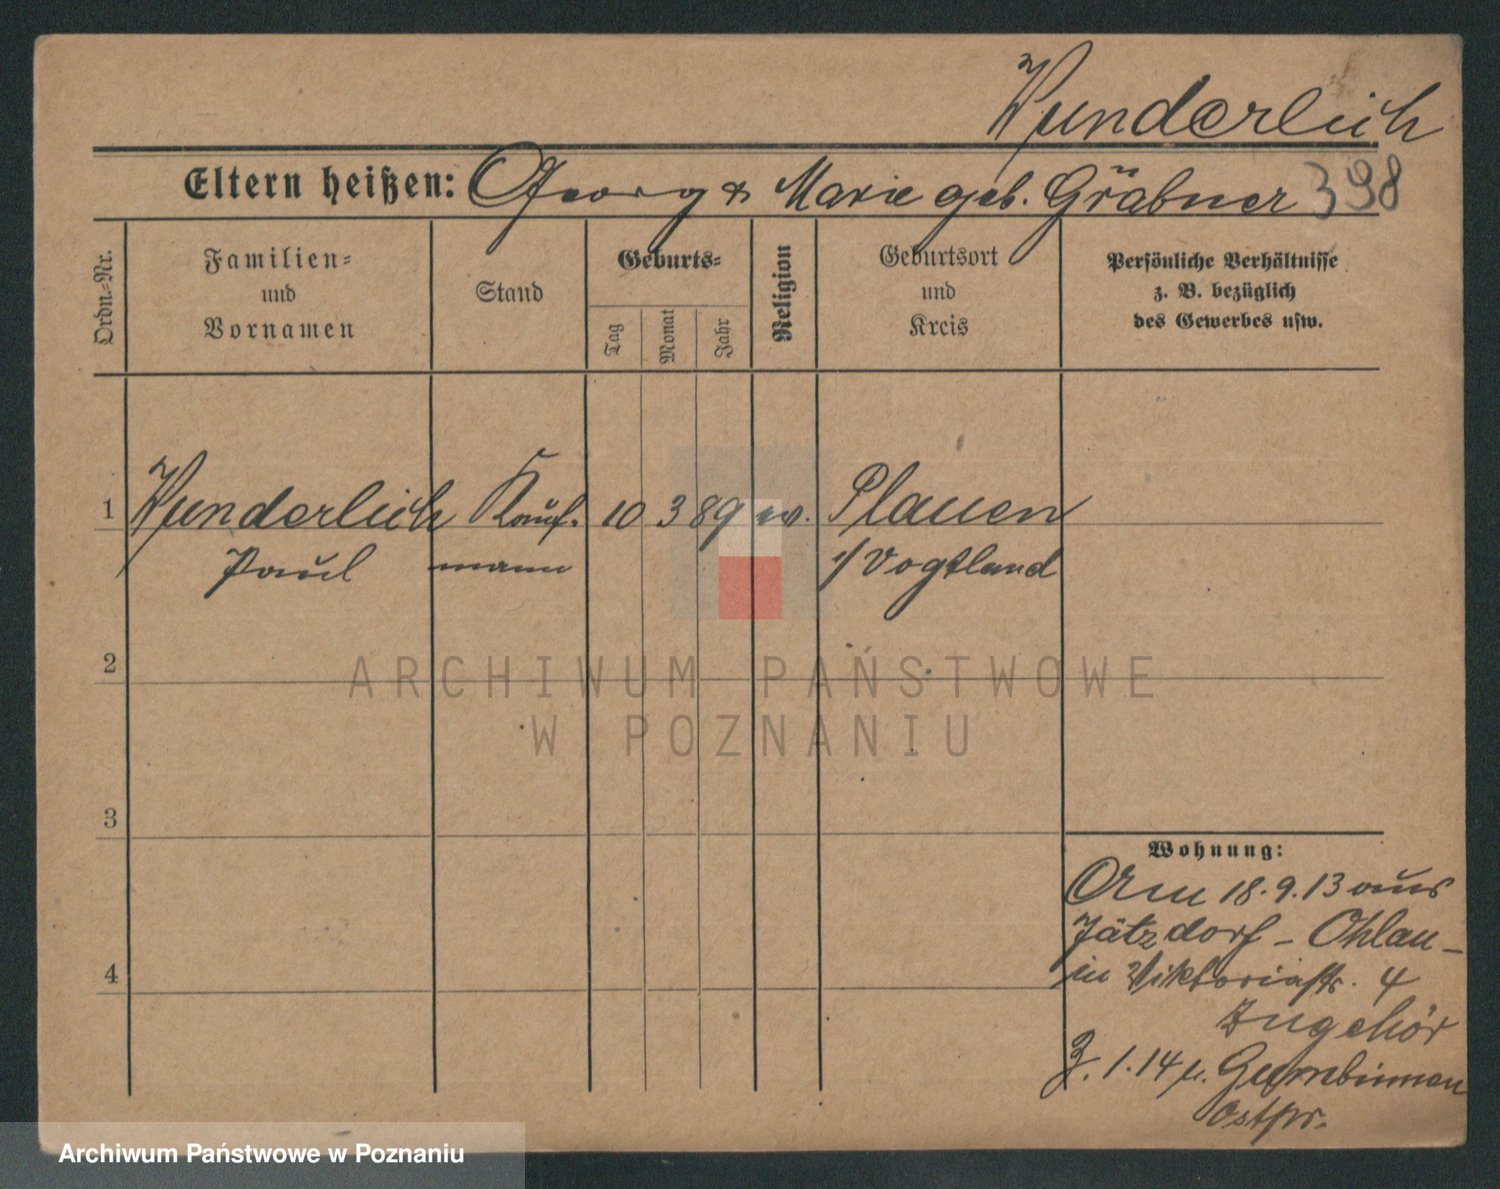 Wunderlich
Eltern heißen: Georg & Marie geb. Gräbner 398
Ordn.-Nr.
Familien-
und
Vornamen
Stand
Geburts-
Tag
Monat
Jahr
Religion
Geburtsort
und
Kreis
Persönliche Verhältnisse
z. B. bezüglich
des Gewerbes usw.
1 Wunderlich Kauf- 10 3 89 ev. Plauen
Paul mann i/Vogtland
2
ARCHIWUM PAŃSTWOWE
W POZNANIU
3
Wohnung:
Am 18.9.13 aus
Jätzdorf - Ohlau -
in Viktoriastr. 4
4
Zugehör
3.1.14 n. Gumbinnen
Ostpr.
Archiwum Państwowe w Poznaniu